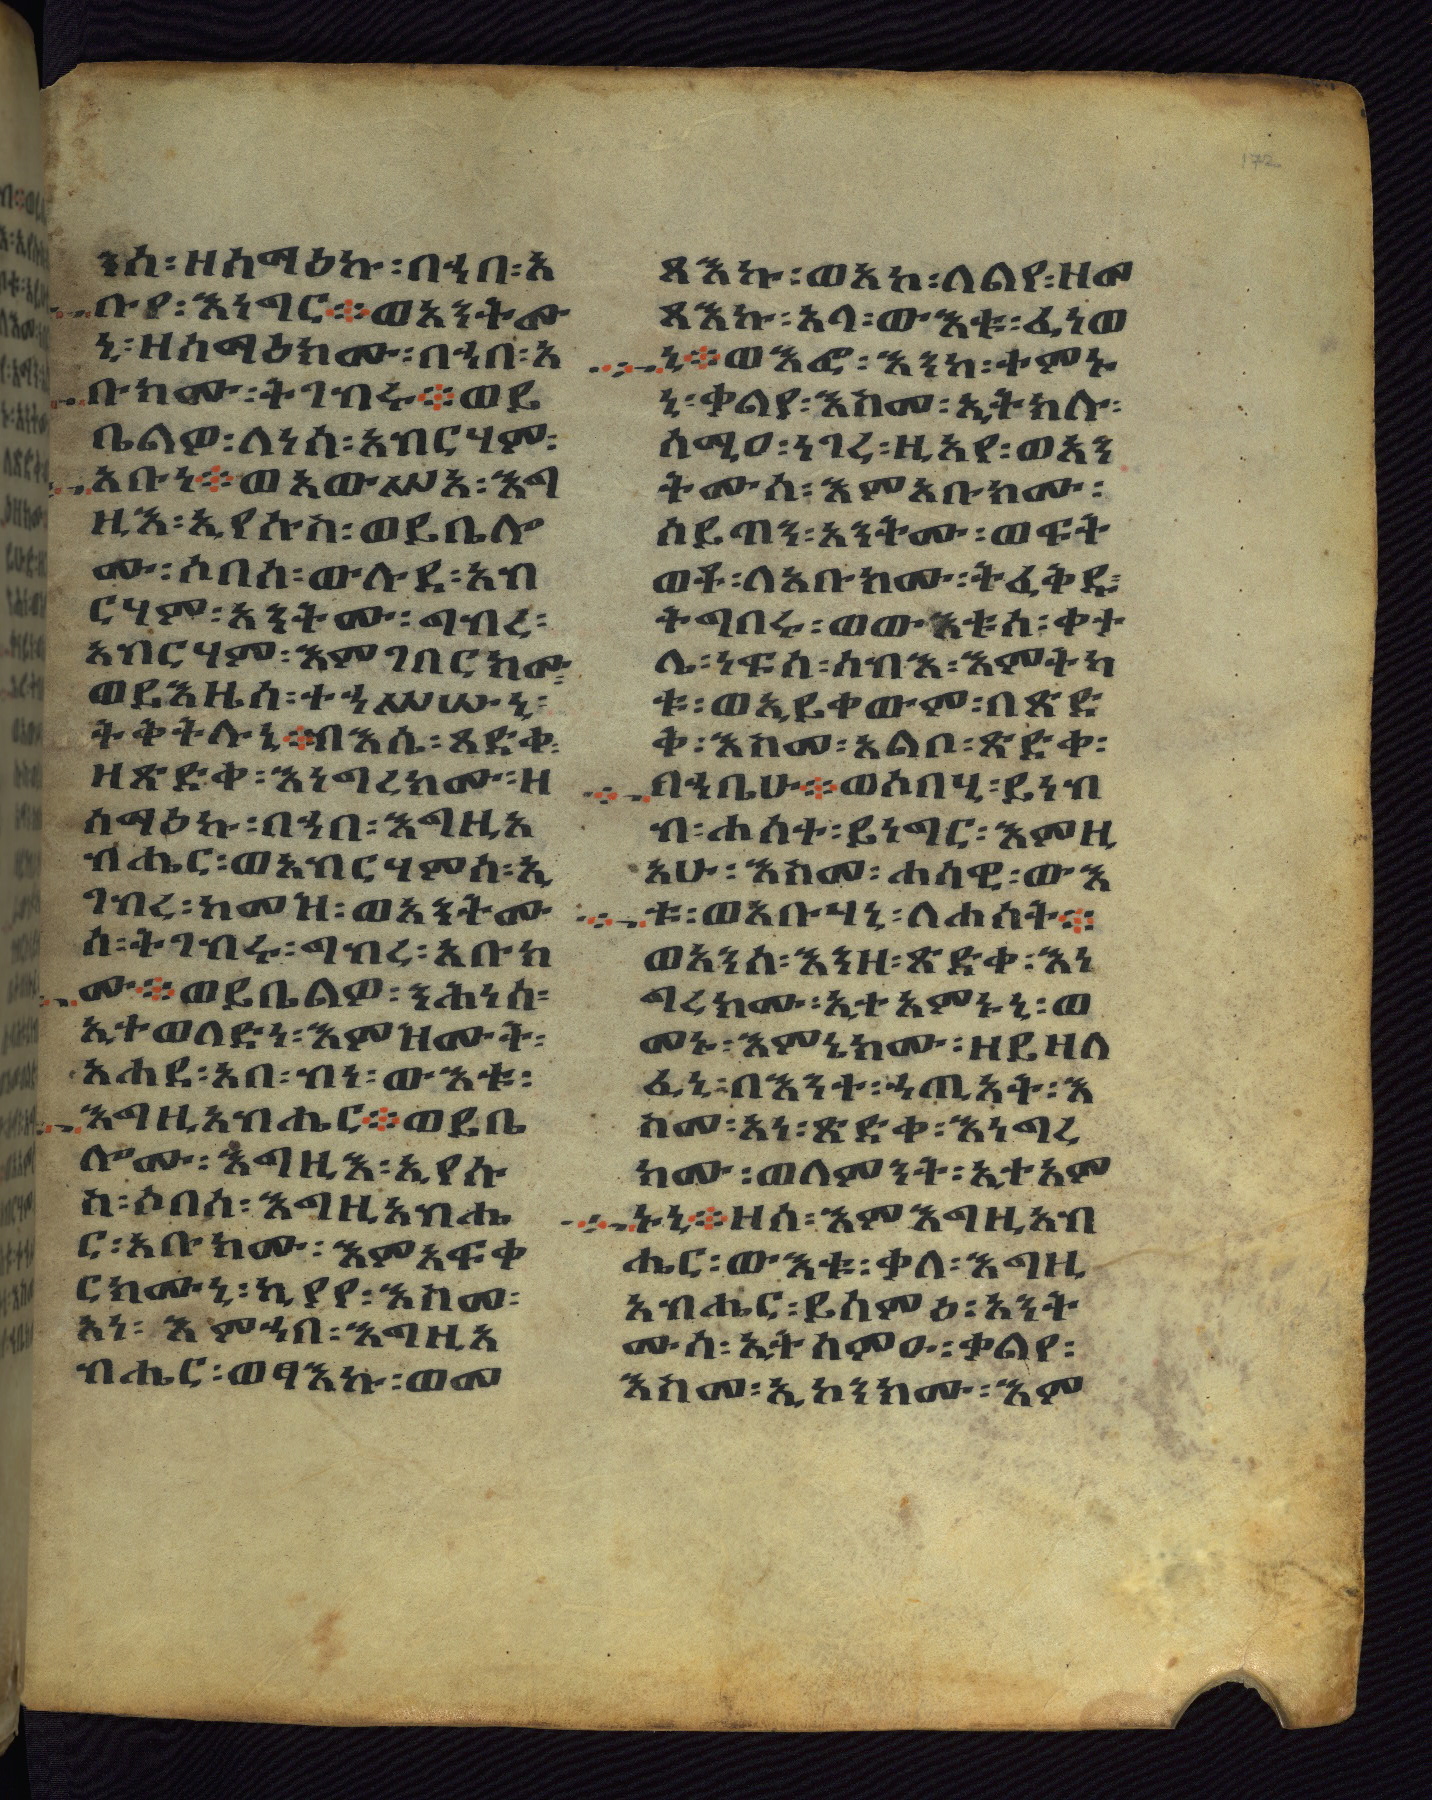 ንሰ፡ዘሰማዕኩ፡በኀበ፡አ
ቡየ፡እነግር፨ወአንትሙ
ኒ፡ዘሰማዕክሙ፡በኀበ፡አ
ቡክሙ፡ትገብሩ፨ወይ
ቤልዎ፡ለነሰ፡አብርሃም፡
አቡነ፨ወአውሥአ፡እግ
ዚእ፡ኢየሱስ፡ወይቤሎ
ሙ፡ሶበሰ፡ውሉደ፡አብ
ርሃም፡አንትሙ፡ግብረ፡
አብርሃም፡እምገበርክሙ፡
ወይእዜሰ፡ተኀሥሡኒ፡
ትቅትሉኒ፨ብእሴ፡ጻድቀ፡
ዘጽድቀ፡እነግረክሙ፡ዘ
ሰማዕኩ፡በኀበ፡እግዚአ
ብሔር፡ወአብርሃምሰ፡ኢ
ገብረ፡ከመዝ፡ወአንትሙ
ሰ፡ትገብሩ፡ግብረ፡አቡክ
ሙ፨ወይቤልዎ፡ንሕነሰ፡
ኢተወለድነ፡እምዝሙት፡
አሐደ፡አበ፡ብነ፡ውእቱ፡
እግዚአብሔር፨ወይቤ
ሎሙ፡እግዚእ፡ኢየሱ
ስ፡ሶበሰ፡እግዚአብሔ
ር፡አቡክሙ፡እምአፍቀ
ርክሙኒ፡ኪያየ፡እስመ፡
አነ፡እምኀበ፡እግዚአ
ብሔር፡ወፃእኩ፡ወመ
ጻእኩ፡ወአኮ፡ለልየ፡ዘመ
ጻእኩ፡አላ፡ውእቱ፡ፈነወ
ኒ፨ወእፎ፡እንከ፡ተምኑ
ኒ፡ቀልየ፡እስመ፡ኢትክሉ፡
ሰሚዐ፡ነገረ፡ዚአየ፡ወአን
ትሙሰ፡እምአቡክሙ፡
ሰይጣን፡አንትሙ፡ወፍት
ወቶ፡ለአቡክሙ፡ትፈቅዱ፡
ትግበሩ፡ወውእቱሰ፡ቀታ
ሌ፡ነፍሰ፡ሰብእ፡እምትካ
ቱ፡ወኢይቀውም፡በጽድ
ቅ፡እስመ፡አልቦ፡ጽድቀ፡
በኀቤሁ፨ወሶበሂ፡ይነብ
ብ፡ሐሰተ፡ይነግር፡እምዚ
አሁ፡እስመ፡ሐሳዊ፡ውእ
ቱ፡ወአቡሃኒ፡ለሐሰት፨
ወአንሰ፡እንዘ፡ጽድቀ፡እነ
ግረክሙ፡ኢተአምኑኒ፡ወ
መኑ፡እምኔክሙ፡ዘይዘለ
ፈኒ፡በእንተ፡ኀጢአት፡እ
ስመ፡አነ፡ጽድቀ፡እነግረ
ክሙ፡ወለምንት፡ኢተአም
ኑኒ፨ዘሰ፡እምእግዚአብ
ሔር፡ውእቱ፡ቃለ፡እግዚ
አብሔር፡ይሰምዕ፡አንት
ሙሰ፡ኢትሰምዑ፡ቃልየ፡
እስመ፡ኢኮንክሙ፡እም